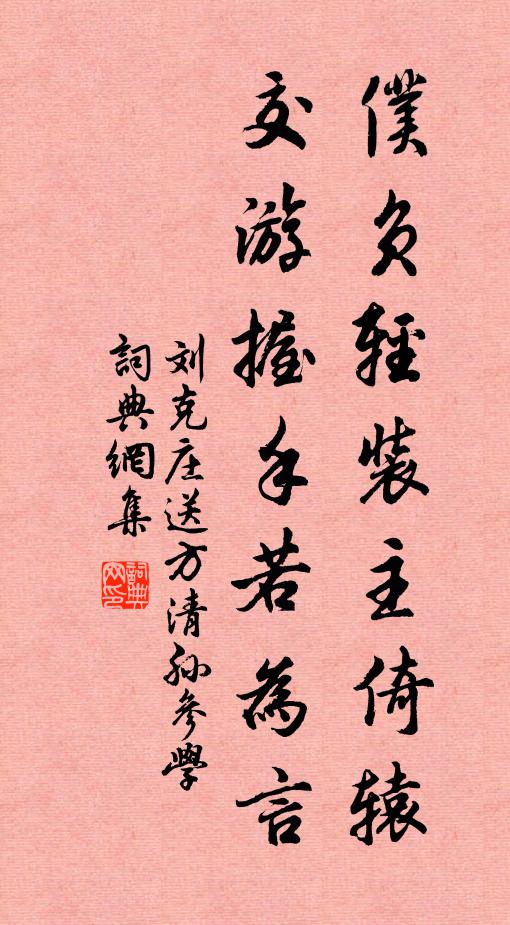 僕負輕裝主倚辕
交游握手若為言
刘克庄送方清孙參學
詞典網集
詞典网印